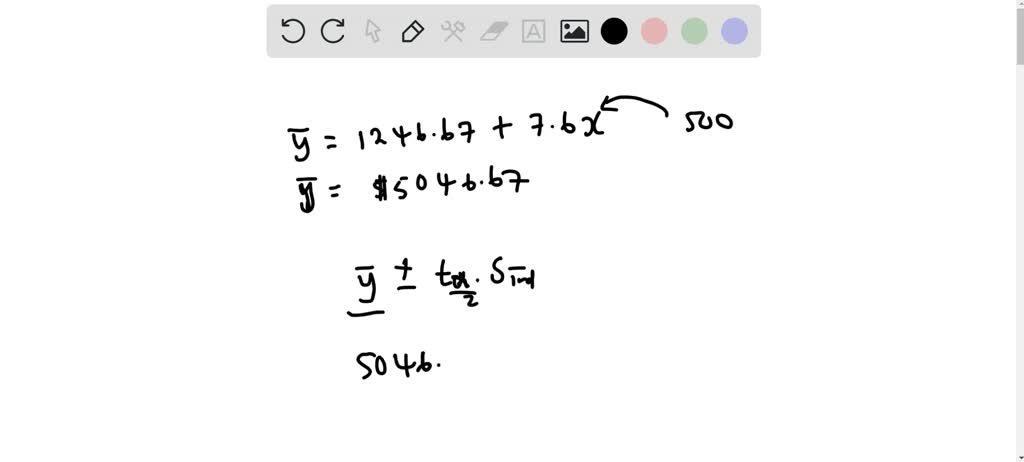 ȳ = 1246.67 + 7.6x 500
ȳ = $5046.67
ȳ ± tα/2 · Sind
5046.